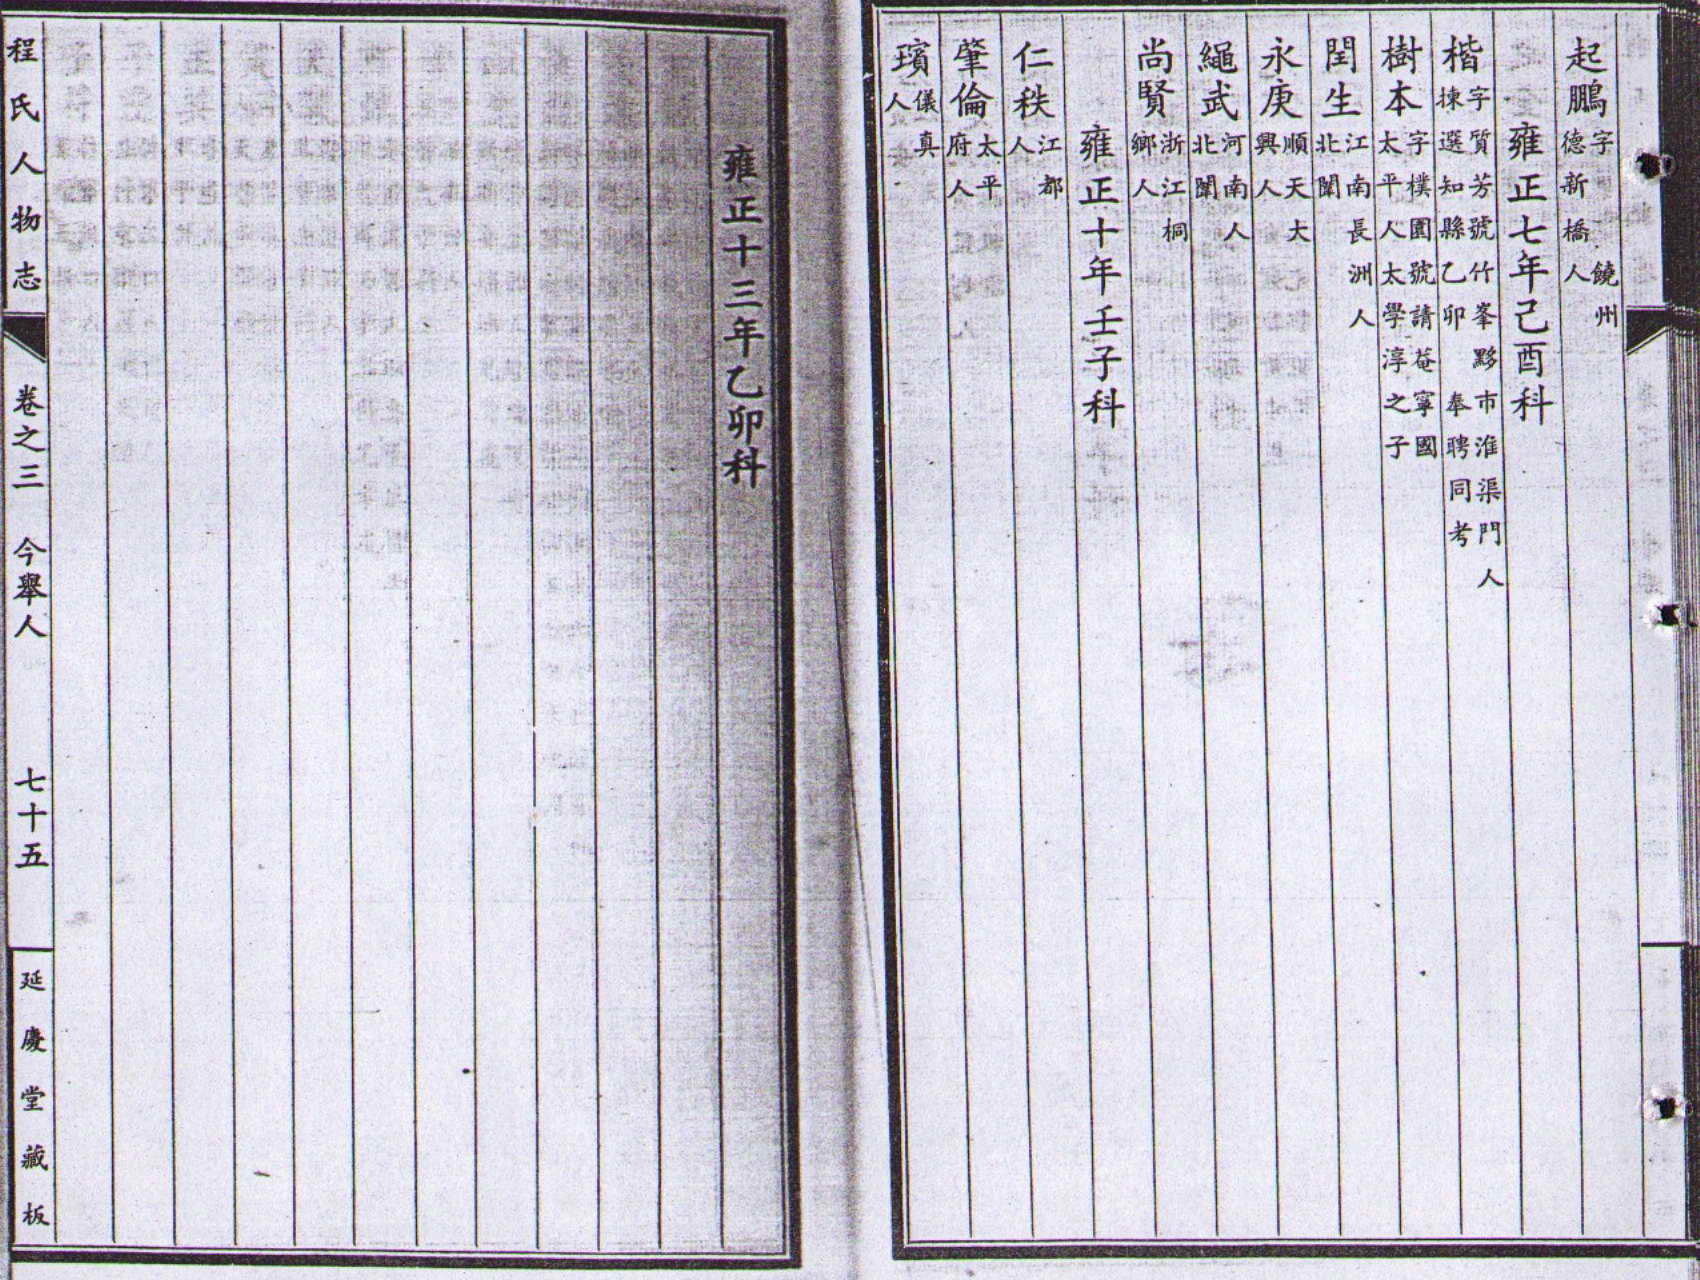 起鵬 字 饒州
德新橋人
雍正七年己酉科
楷 字質芳號竹峯黟市淮渠門人
揀選知縣乙卯 奉聘同考
樹本 字樸園號請菴寧國
太平人太學淳之子
閏生 江南長洲人
北闈
永庚 順天大
興人
繩武 河南人
北闈
尚賢 浙江桐
鄉人
雍正十年壬子科
仁秩 江都
人
肇倫 太平
府人
璸 儀真
人
雍正十三年乙卯科
程氏人物志 卷之三 今舉人 七十五 延慶堂藏板